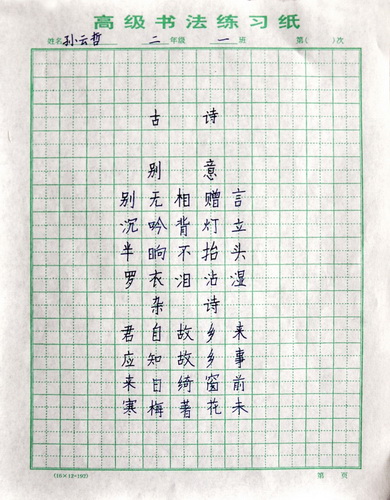 高级书法练习纸
姓名 孙云哲 二 年级 一 班 第( )次
古 诗
别 意
别 无 相 赠 言
沉 吟 背 灯 立
半 晌 不 抬 头
罗 衣 泪 沾 湿
杂 诗
君 自 故 乡 来
应 知 故 乡 事
来 日 绮 窗 前
寒 梅 著 花 未
(16×12=192) 第 页